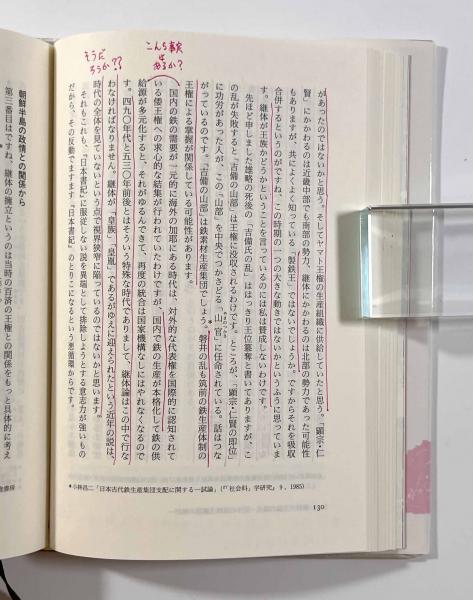 こんな事実
はあるか？
そうだ
ろうか??
があったのではないかと思う。そしてヤマト王権の生産組織に供給していたと思う。「顕宗・仁
賢」にかかわるのは近畿中部でも南部の勢力、継体にかかわるのは北部の勢力であった可能性
もありますが、共によくよく知っている「製鉄王」ではないでしょうか。ですからそれを吸収
合併するというのがですね、この時期の一つの大きな動きではないかというふうに思っていま
す。継体が王族かどうかということを言っているのには私は賛成しないわけです。
先ほど申しました雄略の死後の「吉備氏の乱」ははっきり王位簒奪と書いてありますが、こ
の乱が失敗すると「吉備の山部」は王権に没収されるわけです。ところが、「顕宗・仁賢の即位」
に功労があった人が、この「山部」を中央でつかさどる「山官」に任命されている。話はつな
がっているのです。「吉備の山部」は鉄素材生産集団でしょう。磐井の乱も筑前の鉄生産体制の
王権による掌握が関係している可能性があります。
国内の鉄の需要が一元的に海外の加耶にある時代は、対外的な代表権を国際的に認知されて
いる倭王権への求心的な結集が行われていたわけですが、国内で鉄の生産が本格化して鉄の供
給源が多元化すると、それがゆるんできて、再度の統合は国家機構なしにはやれなくなるので
す。四九〇年代と五三〇年前後とはそういう特殊な時代でありまして、継体論はこの中で行な
わなければなりません。継体が「皇族」「皇胤」であるがゆえに迎えられたという近年の説は、
時代の全体を見ていないという点で視界狭窄に陥っているのではないかと思います。
それもこれも、『日本書紀』に服従しない説を異端として排除しようとする意志力が強いもの
だから、その反動でますます『日本書紀』のとりこになるという悪循環からです。
朝鮮半島の政情との関係から
第三番目はですね、継体の擁立というのは当時の百済の王権との関係をもっと具体的に考え
*小林昌二「日本古代鉄生産集団支配に関する一試論」(『「社会科」学研究』9、1985)
130